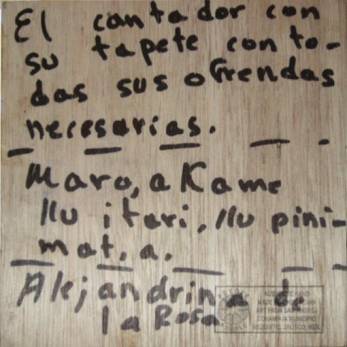 El cantador con
su tapete con to-
das sus ofrendas
necesarias.
Maro, a Kame
llu itari, llu pini-
mat, a.
Alejandrina de
la Rosa